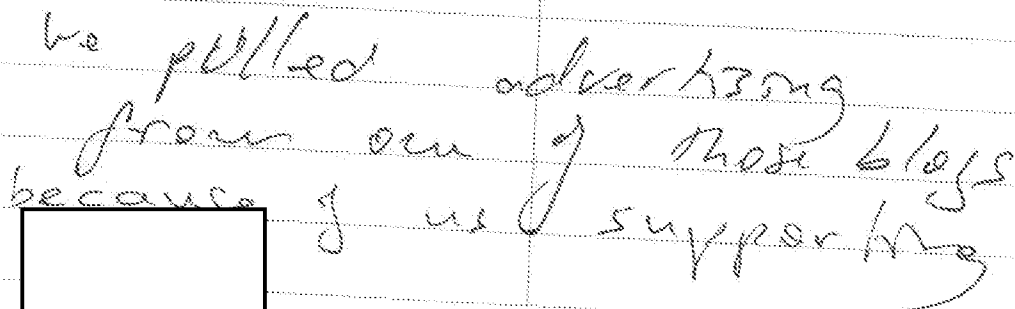 be pulled advertising
from one of those blogs
because of us supporting